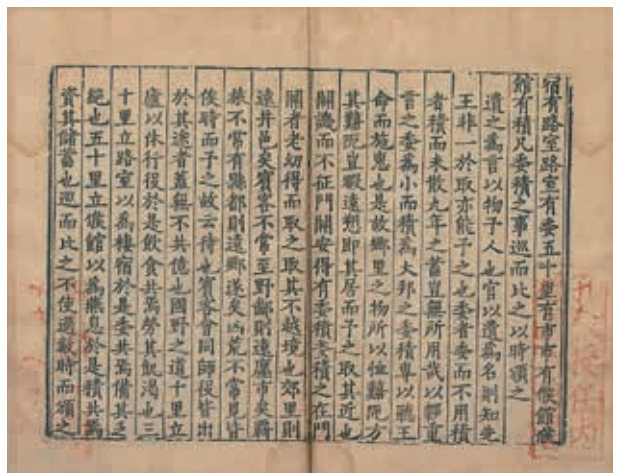 宿有路室路室有委五十里有市市有候館候
館有積凡委積之事巡而比之以時頒之
遺之為言以物予人也官以遺為名則知先
王非一於取亦能予之也委者委而不用積
者積而未散九年之蓄豈無所用哉以輕重
言之委為小而積為大邦之委積專以聽王
命而施惠也是故鄉里之物所以恤囏阨方
其囏阨豈暇遠愬即其居而予之取其近也
關譏而不征門關安得有委積委積之在門
關者老幼得而取之取其不越境也郊里則
遠井邑矣賓客不常至野鄙則遠廛市矣羇
旅不常有縣都則遠鄉遂矣凶荒不常見皆
俟時而予之故云待也賓客會同師役皆出
於其途者蓋無不共億也國野之道十里立
廬以休行役於是飲食共焉勞其飢渴也三
十里立路室以為棲宿於是委共焉備其乏
絕也五十里立候館以為燕息於是積共焉
資其儲蓄也巡而比之不使過歉時而頒之